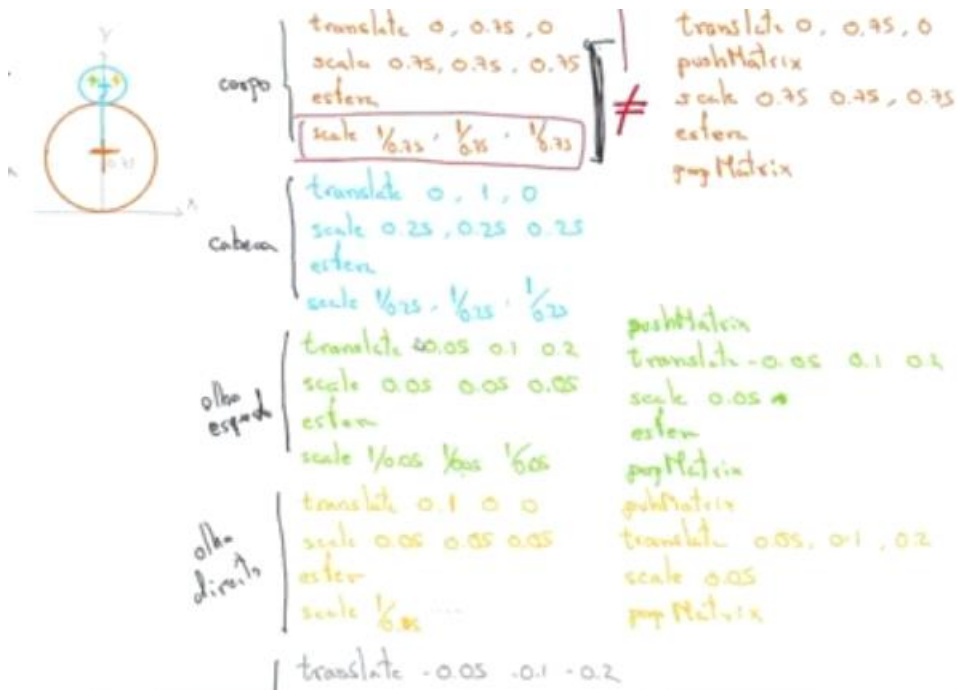 Y
X
0.75
corpo
translate 0, 0.75, 0
scala 0.75, 0.75, 0.75
esfera
scale 1/0.75, 1/0.75, 1/0.75
≠
translate 0, 0.75, 0
pushMatrix
scale 0.75 0.75, 0.75
esfera
popMatrix
cabeca
translate 0, 1, 0
scale 0.25, 0.25 0.25
esfera
scale 1/0.25, 1/0.25, 1/0.25
olho
esquerdo
translate -0.05 0.1 0.2
scale 0.05 0.05 0.05
esfera
scale 1/0.05 1/0.05 1/0.05
pushMatrix
translate -0.05 0.1 0.2
scale 0.05
esfera
popMatrix
olho
direito
translate 0.1 0 0
scale 0.05 0.05 0.05
esfera
scale 1/0.05 ....
pushMatrix
translate 0.05, 0.1, 0.2
scale 0.05
popMatrix
translate -0.05 -0.1 -0.2